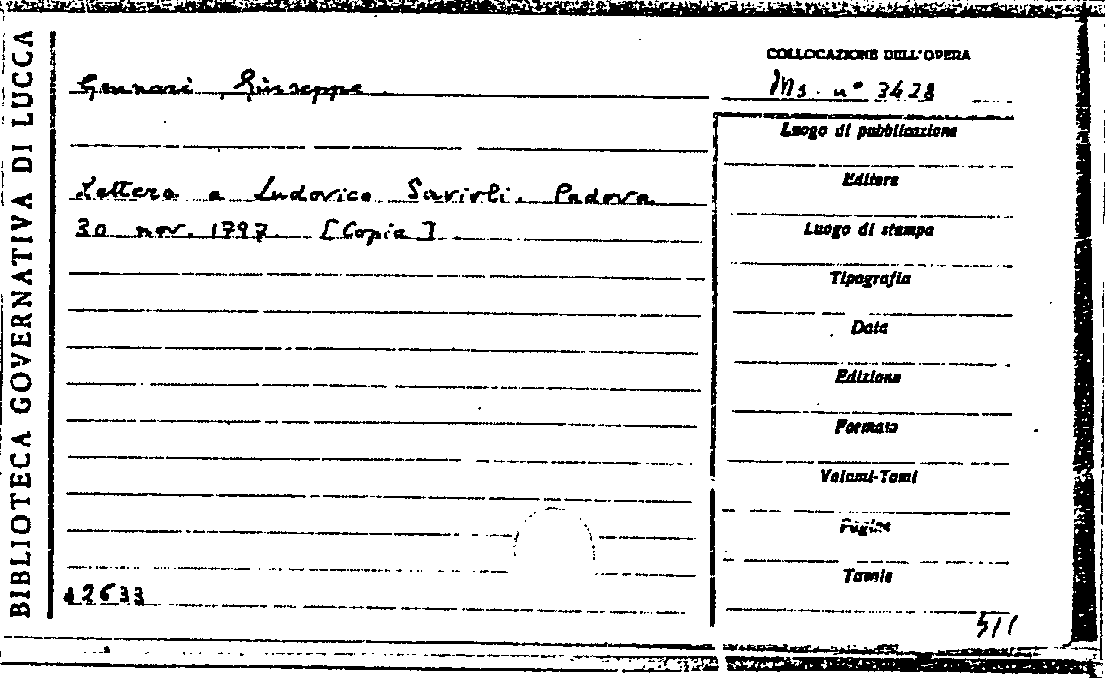 BIBLIOTECA GOVERNATIVA DI LUCCA
COLLOCAZIONE DELL'OPERA
Ms. n° 3428
Gennari Giuseppe.
Lettera a Ludovico Savioli. Padova
30 nov. 1797. [Copia].
Luogo di pubblicazione
Editore
Luogo di stampa
Tipografia
Data
Edizione
Formato
Volumi-Tomi
Pagine
Tavole
12633
511